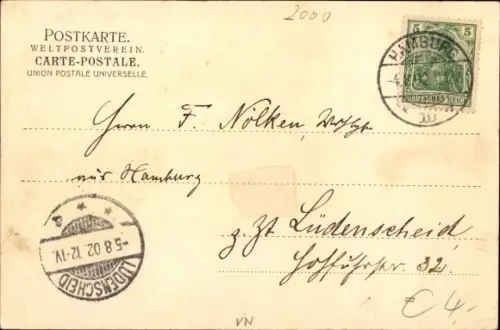 2000
POSTKARTE.
WELTPOSTVEREIN.
CARTE-POSTALE.
UNION POSTALE UNIVERSELLE.
5 5
DEUTSCHES REICH
HAMBURG
Herrn F. Nölken,
aus Hamburg
z. Zt. Lüdenscheid
32.
-5.8.02.12-1V.
LÜDENSCHEID
€ 4,-
VN